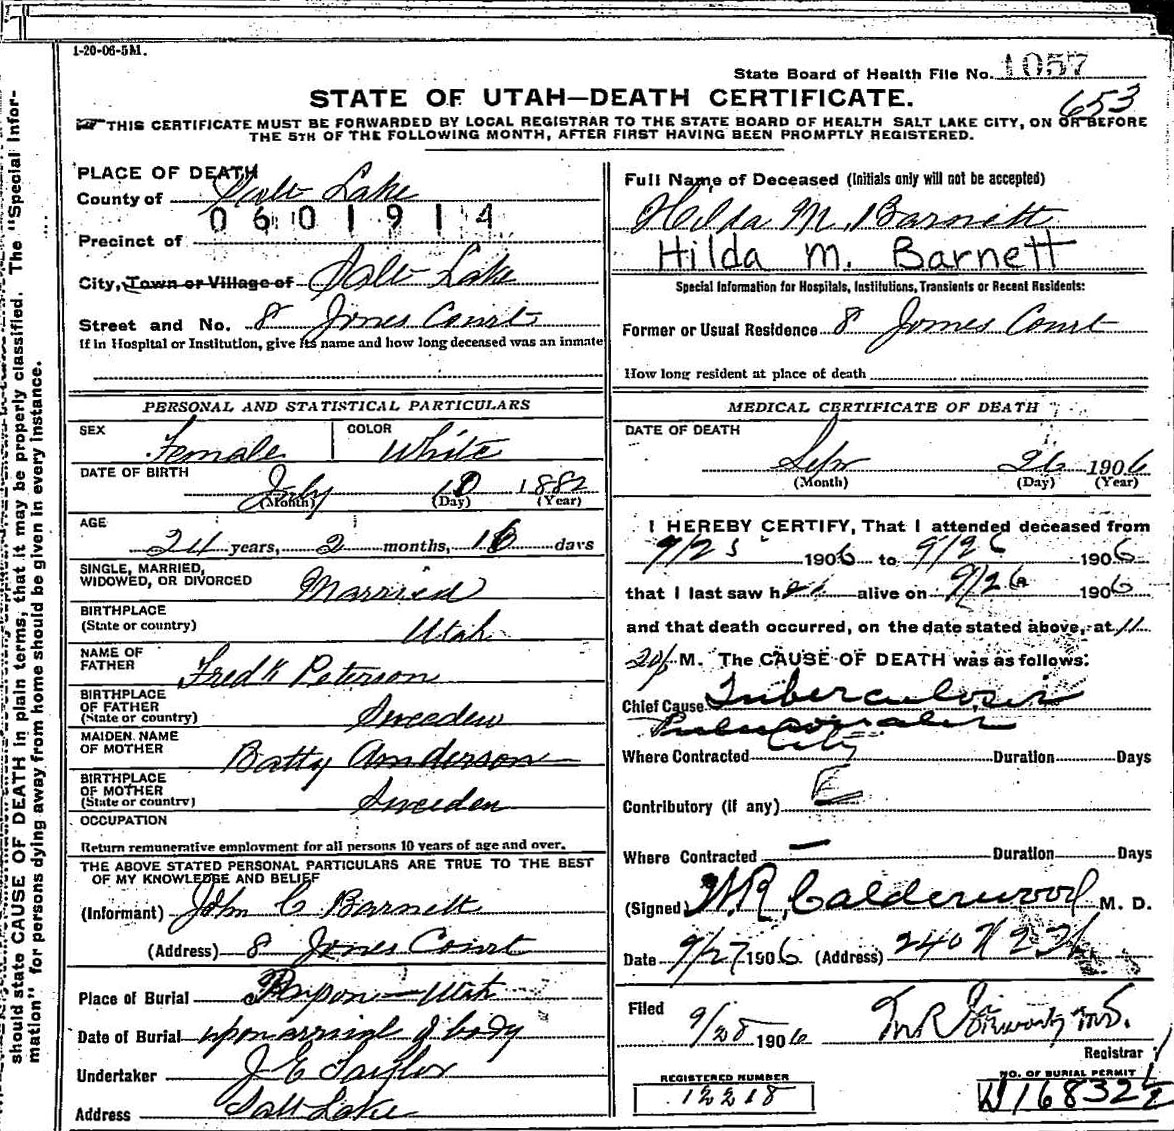 1-20-06-5M.
State Board of Health File No. 1057
653
STATE OF UTAH—DEATH CERTIFICATE.
THIS CERTIFICATE MUST BE FORWARDED BY LOCAL REGISTRAR TO THE STATE BOARD OF HEALTH SALT LAKE CITY, ON OR BEFORE
THE 5TH OF THE FOLLOWING MONTH, AFTER FIRST HAVING BEEN PROMPTLY REGISTERED.
should state CAUSE OF DEATH in plain terms, that it may be properly classified. The "Special Infor-
mation" for persons dying away from home should be given in every instance.
PLACE OF DEATH
County of Salt Lake
0601914
Precinct of
City, Town or Village of Salt Lake
Street and No. 8 Jones Court
If in Hospital or Institution, give its name and how long deceased was an inmate
PERSONAL AND STATISTICAL PARTICULARS
SEX Female COLOR White
DATE OF BIRTH July 10 1882
(Month) (Day) (Year)
AGE 24 years, 2 months, 16 days
SINGLE, MARRIED,
WIDOWED, OR DIVORCED Married
BIRTHPLACE
(State or country) Utah
NAME OF
FATHER Fredk Peterson
BIRTHPLACE
OF FATHER
(State or country) Sweeden
MAIDEN NAME
OF MOTHER Batty Anderson
BIRTHPLACE
OF MOTHER
(State or country) Sweeden
OCCUPATION
Return remunerative employment for all persons 10 years of age and over.
THE ABOVE STATED PERSONAL PARTICULARS ARE TRUE TO THE BEST
OF MY KNOWLEDGE AND BELIEF
(Informant) John C Barnett
(Address) 8 Jones Court
Place of Burial Utah
Date of Burial upon arrival of body
Undertaker J E Taylor
Address Salt Lake
Full Name of Deceased (Initials only will not be accepted)
Hilda M. Barnett
Hilda M. Barnett
Special Information for Hospitals, Institutions, Transients or Recent Residents:
Former or Usual Residence 8 Jones Court
How long resident at place of death
MEDICAL CERTIFICATE OF DEATH
DATE OF DEATH
Sep 26 1906
(Month) (Day) (Year)
I HEREBY CERTIFY, That I attended deceased from
9/25 1906 to 9/26 1906
that I last saw her alive on 9/26 1906
and that death occurred, on the date stated above, at 11
20 P M. The CAUSE OF DEATH was as follows:
Chief Cause Tuberculosis
Pulmonalis
Where Contracted City Duration Days
Contributory (if any)
Where Contracted — Duration Days
(Signed) W.R. Calderwood M. D.
Date 9/27 1906 (Address)
Filed 9/28 1906
Registrar
REGISTERED NUMBER
12218
NO. OF BURIAL PERMIT